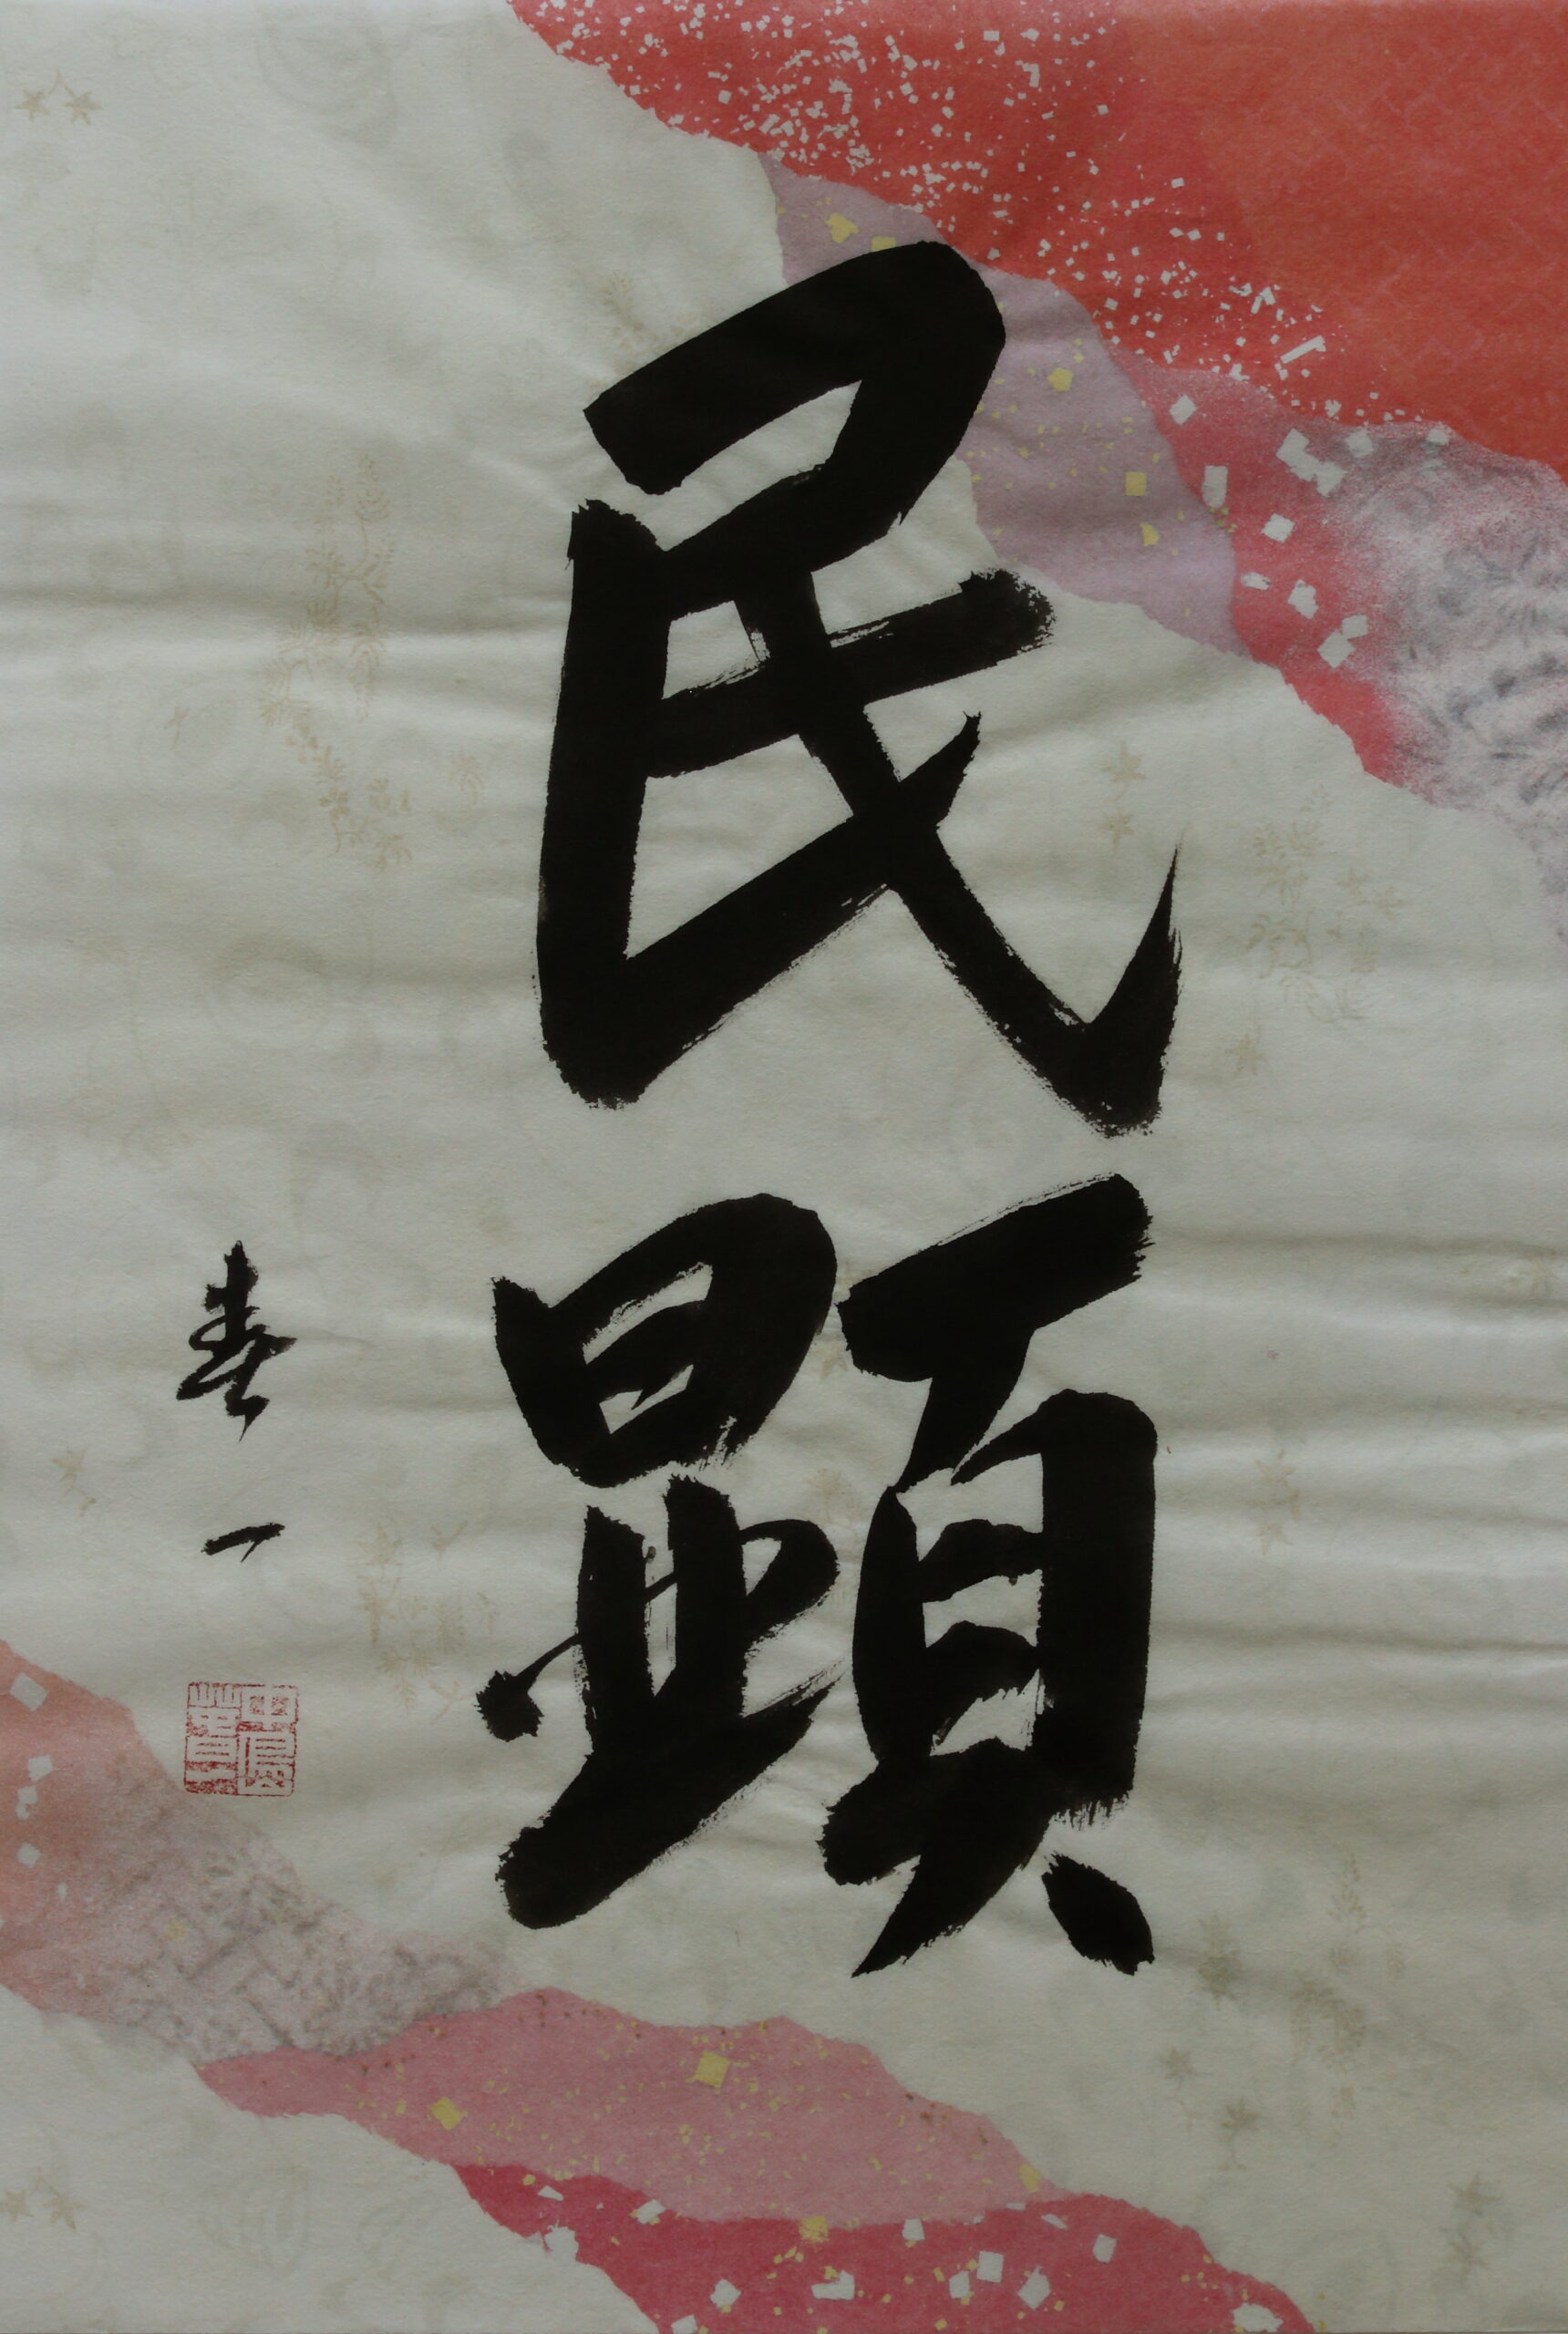 民顕
春一